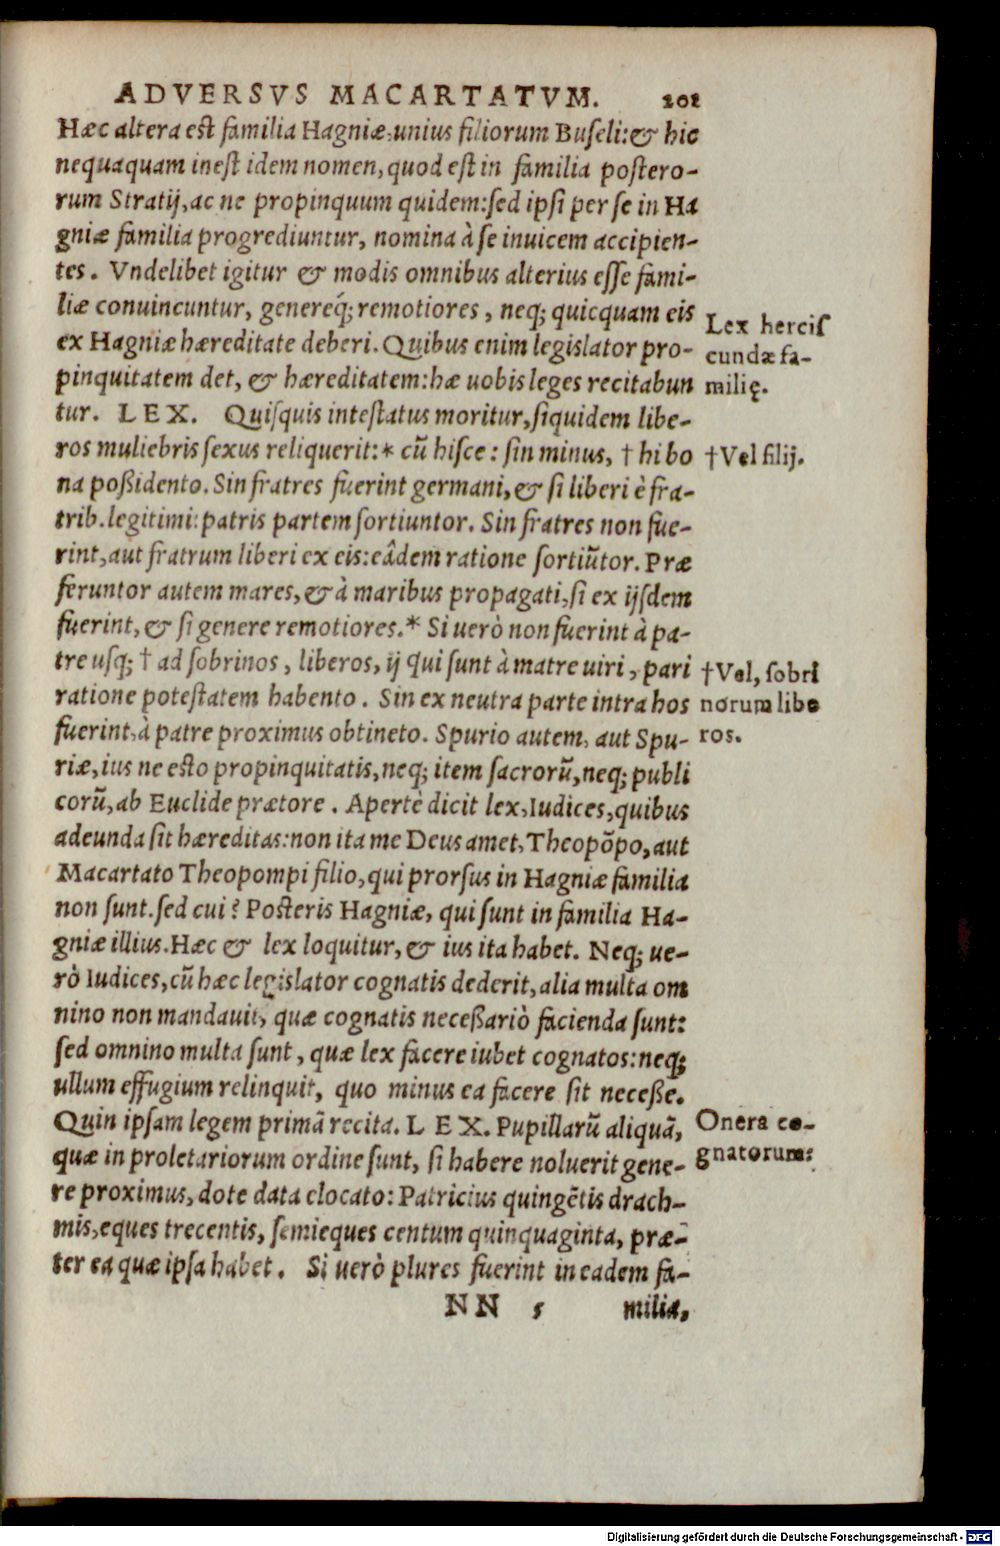 ADVERSVS MACARTATVM. 201
Hæc altera est familia Hagniæ, unius filiorum Buseli: & hic
nequaquam inest idem nomen, quod est in familia postero-
rum Stratij, ac ne propinquum quidem: sed ipsi per se in Ha
gniæ familia progrediuntur, nomina à se inuicem accipien-
tes. Vndelibet igitur & modis omnibus alterius esse fami-
liæ conuincuntur, genereq́; remotiores, neq; quicquam eis
ex Hagniæ hæreditate deberi. Quibus enim legislator pro-
pinquitatem det, & hæreditatem: hæ uobis leges recitabun
tur. LEX. Quisquis intestatus moritur, siquidem libe-
ros muliebris sexus reliquerit: * cū hisce: sin minus, † hi bo
na poßidento. Sin fratres fuerint germani, & si liberi è fra-
trib. legitimi: patris partem sortiuntor. Sin fratres non fue-
rint, aut fratrum liberi ex eis: eâdem ratione sortiūtor. Præ
feruntor autem mares, & à maribus propagati, si ex ijsdem
fuerint, & si genere remotiores. * Si uerò non fuerint à pa-
tre usq; † ad sobrinos, liberos, ij qui sunt à matre uiri, pari
ratione potestatem habento. Sin ex neutra parte intra hos
fuerint, à patre proximus obtineto. Spurio autem, aut Spu-
riæ, ius ne esto propinquitatis, neq; item sacrorū, neq; publi
corū, ab Euclide prætore. Apertè dicit lex, Iudices, quibus
adeunda sit hæreditas: non ita me Deus amet, Theopōpo, aut
Macartato Theopompi filio, qui prorsus in Hagniæ familia
non sunt. sed cui? Posteris Hagniæ, qui sunt in familia Ha-
gniæ illius. Hæc & lex loquitur, & ius ita habet. Neq; ue-
rò Iudices, cū hæc legislator cognatis dederit, alia multa om
nino non mandauit, quæ cognatis neceßariò facienda sunt:
sed omnino multa sunt, quæ lex facere iubet cognatos: neq;
ullum effugium relinquit, quo minus ea facere sit neceße.
Quin ipsam legem primā recita. LEX. Pupillarū aliquā,
quæ in proletariorum ordine sunt, si habere noluerit gene-
re proximus, dote data elocato: Patricius quingētis drach-
mis, eques trecentis, semieques centum quinquaginta, præ-
ter ea quæ ipsa habet. Si uerò plures fuerint in eadem fa-
NN 5 milia,
Lex hercis
cundæ fa-
milię.
† Vel filij.
† Vel, sobri
norum libe
ros.
Onera co-
gnatorum:
Digitalisierung gefördert durch die Deutsche Forschungsgemeinschaft - DFG